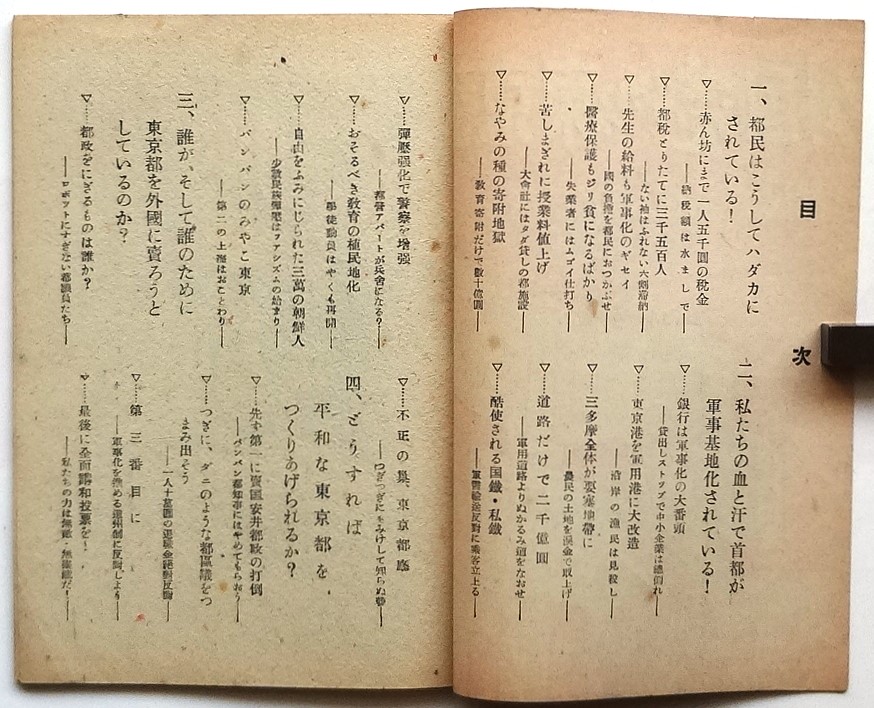 目次
一、都民はこうしてハダカに
されている！
▽……赤ん坊にまで一人五千圓の税金
――納税額は水ましで――
▽……都税とりたてに三千五百人
――ない袖はふれない六割滞納――
▽……先生の給料も軍事化のギセイ
――國の負擔を都民におつかぶせ――
▽……醫療保護もジリ貧になるばかり
――失業者にはムゴイ仕打ち――
▽……苦しまぎれに授業料値上げ
――大會社にはタダ貸しの都施設――
▽……なやみの種の寄附地獄
――敎育寄附だけで數十億圓――
二、私たちの血と汗で首都が
軍事基地化されている！
▽……銀行は軍事化の大番頭
――貸出しストップで中小企業は總倒れ――
▽……東京港を軍用港に大改造
――沿岸の漁民は見殺し――
▽……三多摩全体が要塞地帶に
――農民の土地を涙金で取上げ――
▽……道路だけで二千億圓
――軍用道路よりぬかるみ道をなおせ――
▽……酷使される国鐵・私鐵
――軍需輸送反對に乘客立上る――
▽……彈壓强化で警察を增强
――都營アパートが兵舍になる？――
▽……おそるべき敎育の植民地化
――學徒動員はやくも再開――
▽……自由をふみにじられた三萬の朝鮮人
――少數民族彈壓はファシズムの始まり――
▽……パンパンのみやこ東京
――第二の上海はおことわり――
三、誰が、そして誰のために
東京都を外國に賣ろうと
しているのか？
▽……都政をにぎるものは誰か？
――ロボットにすぎない都議員たち――
▽……不正の巢、東京都廳
――つぎつぎにもみけして知らぬ顏――
四、どうすれば
平和な東京都を
つくりあげられるか？
▽……先ず第一に賣國安井都政の打倒
――パンパン都知事にはやめてもらおう――
▽……つぎに、ダニのような都區議をつ
まみ出そう
――一人十萬圓の退職金絕對反對――
▽……第三番目に
――軍事化を進める道州制に反對しよう――
▽……最後に全面講和投票を！
――私たちの力は無敵・無盡藏だ！――